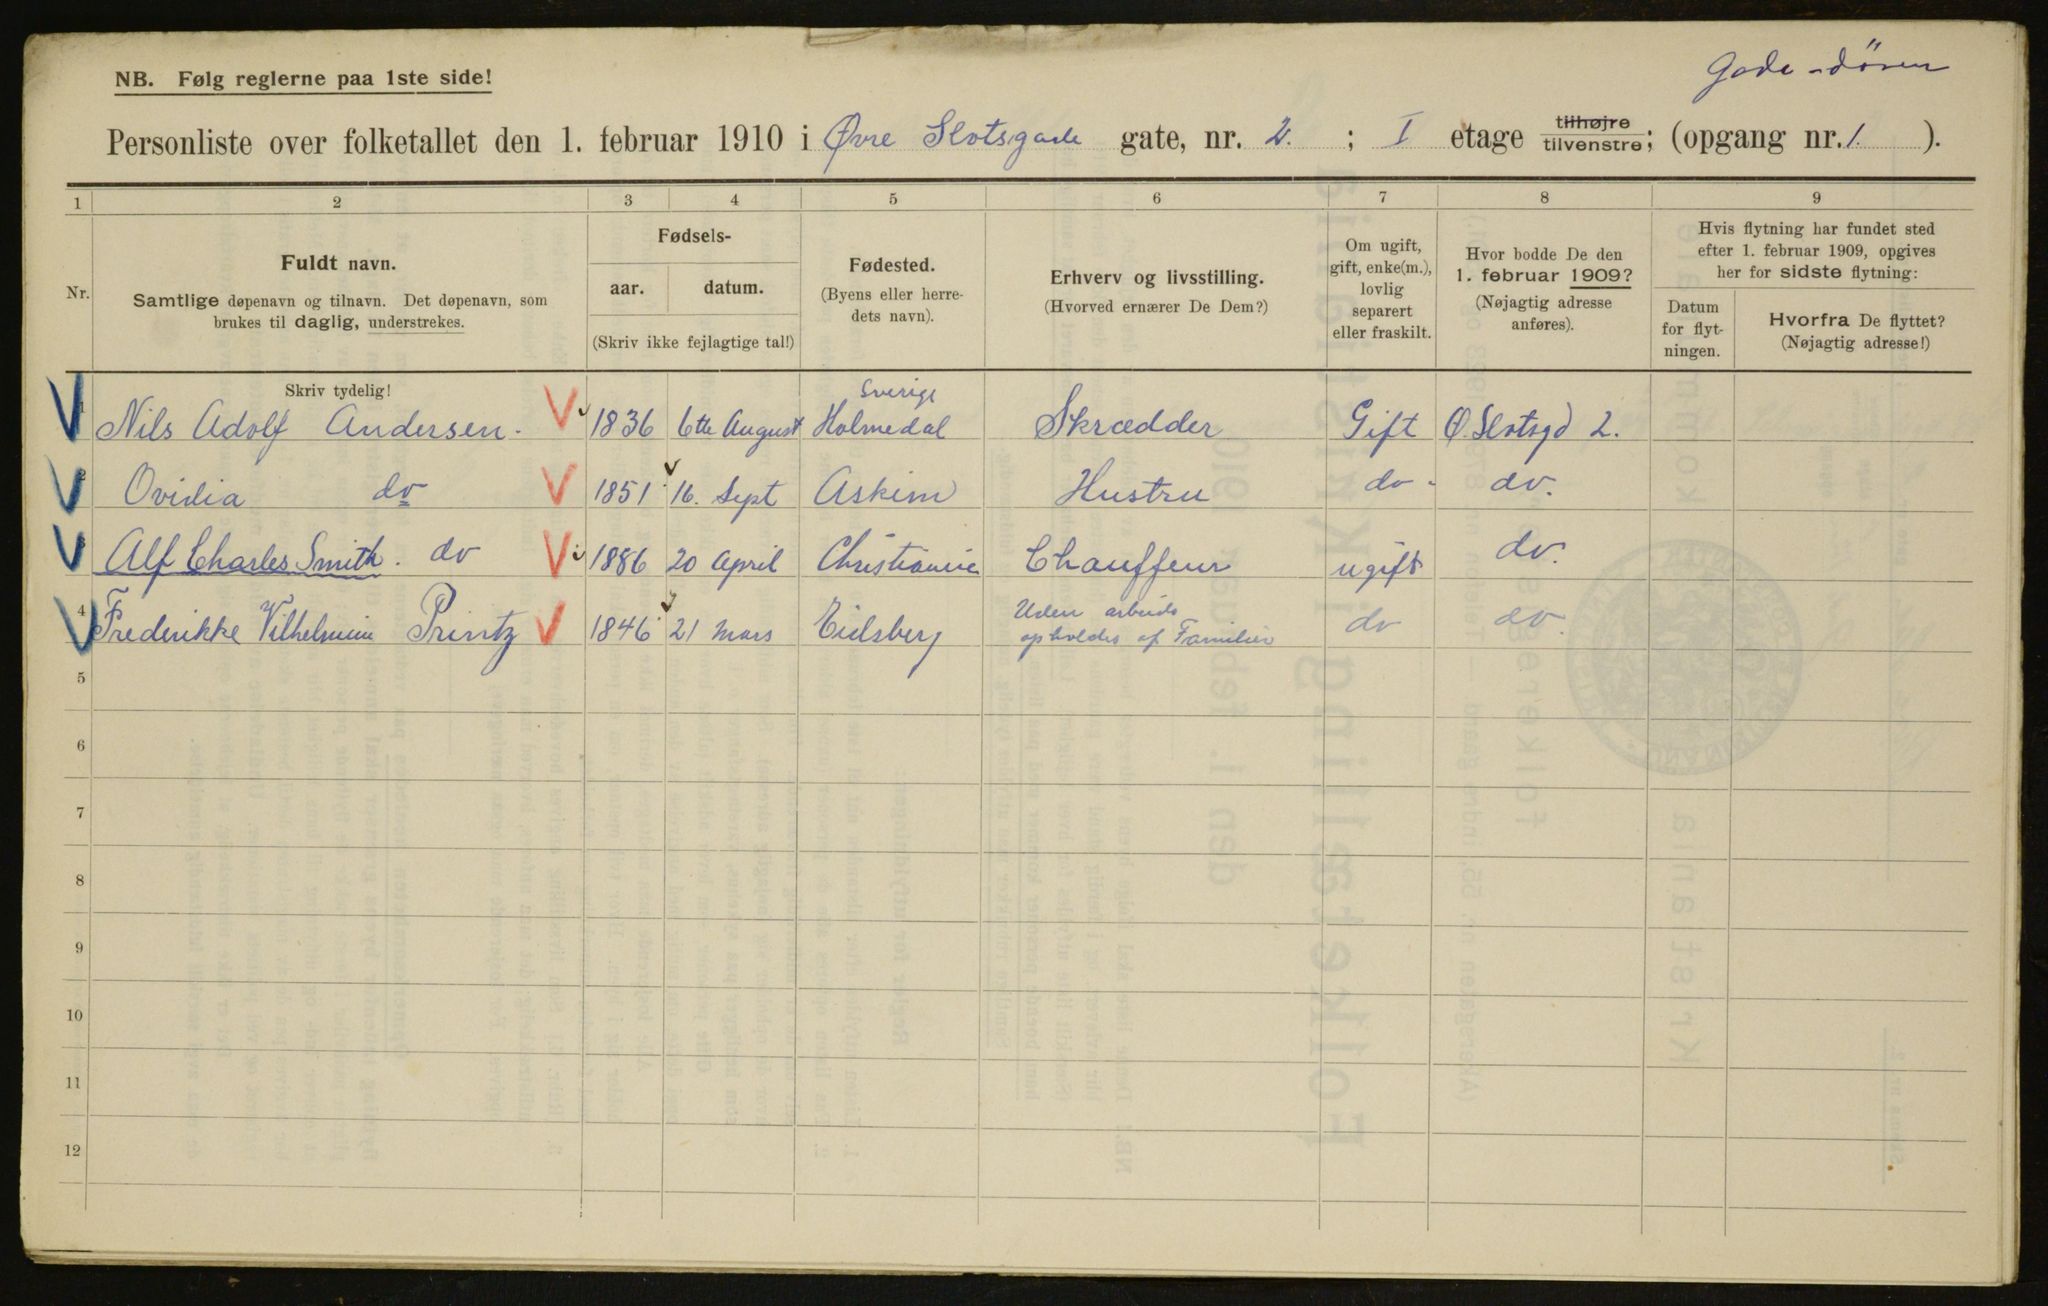 Gade-døren
NB. Følg reglerne paa 1ste side!
Personliste over folketallet den 1. februar 1910 i Øvre Slotsgade gate, nr. 2. ; I etage tilhøjre tilvenstre; (opgang nr. 1. ).
1 2 3 4 5 6 7 8 9
Nr.
Fuldt navn.
Samtlige døpenavn og tilnavn. Det døpenavn, som
brukes til daglig, understrekes.
Fødsels-
aar. datum.
(Skriv ikke fejlagtige tal!)
Fødested.
(Byens eller herre-
dets navn).
Erhverv og livsstilling.
(Hvorved ernærer De Dem?)
Om ugift,
gift, enke(m.),
lovlig
separert
eller fraskilt.
Hvor bodde De den
1. februar 1909?
(Nøjagtig adresse
anføres).
Hvis flytning har fundet sted
efter 1. februar 1909, opgives
her for sidste flytning:
Datum
for flyt-
ningen.
Hvorfra De flyttet?
(Nøjagtig adresse!)
Skriv tydelig!
Sverige
1 Nils Adolf Andersen. 1836 6te August Holmedal Skrædder Gift Ø. Slotsgd 2.
2 Ovidia do 1851 16. Sept Askim Hustru do - do.
3 Alf Charles Smith. do 1886 20 April Christiania Chauffeur ugift do.
4 Frederikke Vilhelmine Printz 1846 21 Mars Eidsberg Uden arbeide opholdes af Familien do do
5
6
7
8
9
10
11
12